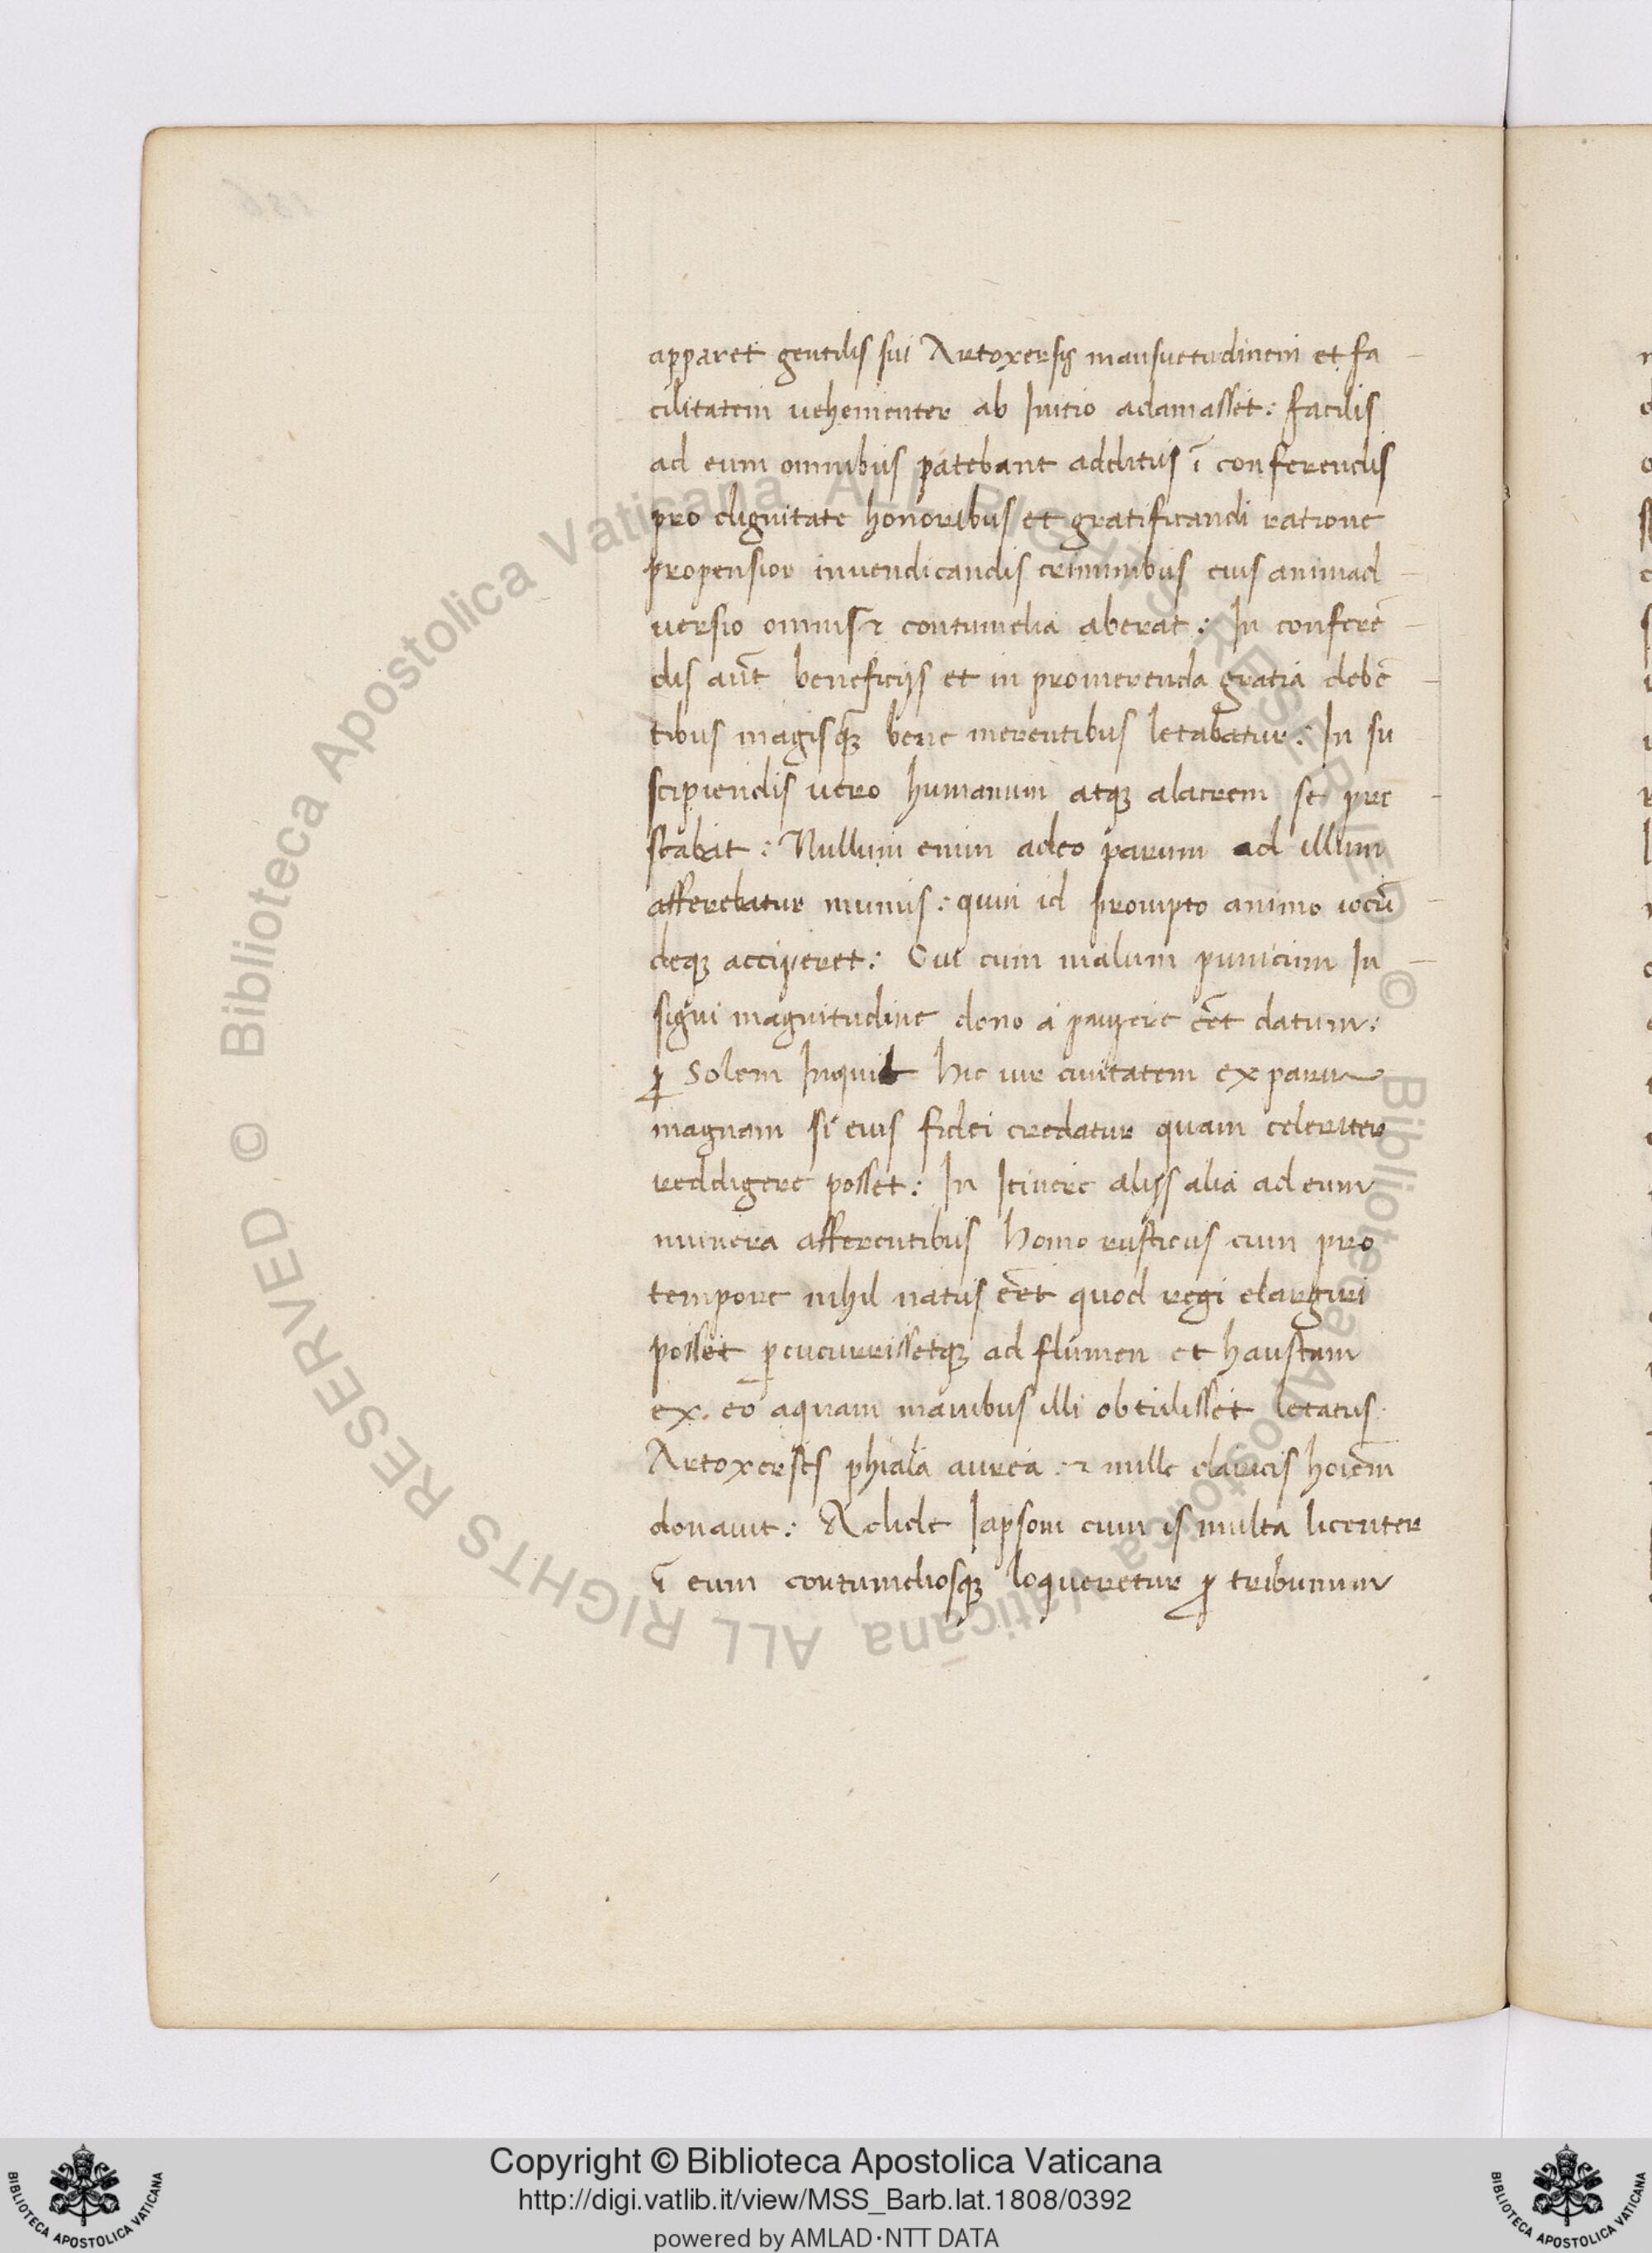 apparet gentilis sui Artoxersis mansuetudinem et fa
cilitatem uehementer ab Initio adamasset: facilis
ad eum omnibus patebant additus ī conferendis
pro dignitate honoribus et gratificandi ratione
propensior inuendicandis criminibus eius animad
uersio omnis & contumelia aberat: In conferē
dis aūt beneficijs et in promerenda gratia debē
tibus magisqꝫ bene merentibus letabatur: In su
scipiendis uero humanum atqꝫ alacrem se pre
stabat: Nullum enim adeo paruum ad illum
afferebatur munus: quin id prompto animo iocū
deqꝫ acciperet: Cui cum malum punicum In
signi magnitudine dono a paupere eēt datum:
ꝑ Solem Inquit hic uir ciuitatem ex parua
magnam si eius fidei credatur quam celeriter
reddigere posset: In Itinere alijs alia ad eum
munera afferentibus homo rusticus cum pro
tempore nihil natus eēt quod regi elargiri
posset ꝑcucurrissetqꝫ ad flumen et haustam
ex eo aquam manibus illi obtulisset letatus
Artoxerses phiala aurea & mille daricis hoīem
donauit: & clide lapsom cum is multa licenter
ī eum contumeliosqꝫ loqueretur ꝑ tribunum
Copyright © Biblioteca Apostolica Vaticana
http://digi.vatlib.it/view/MSS_Barb.lat.1808/0392
powered by AMLAD·NTT DATA